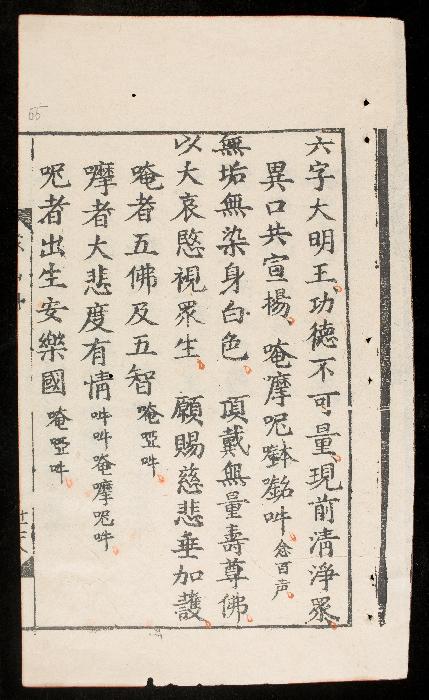 六字大明王功德不可量現前清淨眾
異口共宣楊 唵摩呢鉢𠺗吽 念百声
無垢無染身白色 頂戴無量壽尊佛
以大哀愍視眾生 願賜慈悲垂加護
唵者五佛及五智 唵啞吽
嚤者大悲度有情 吽吽唵摩呢吽
呢者出生安樂國 唵啞吽
65